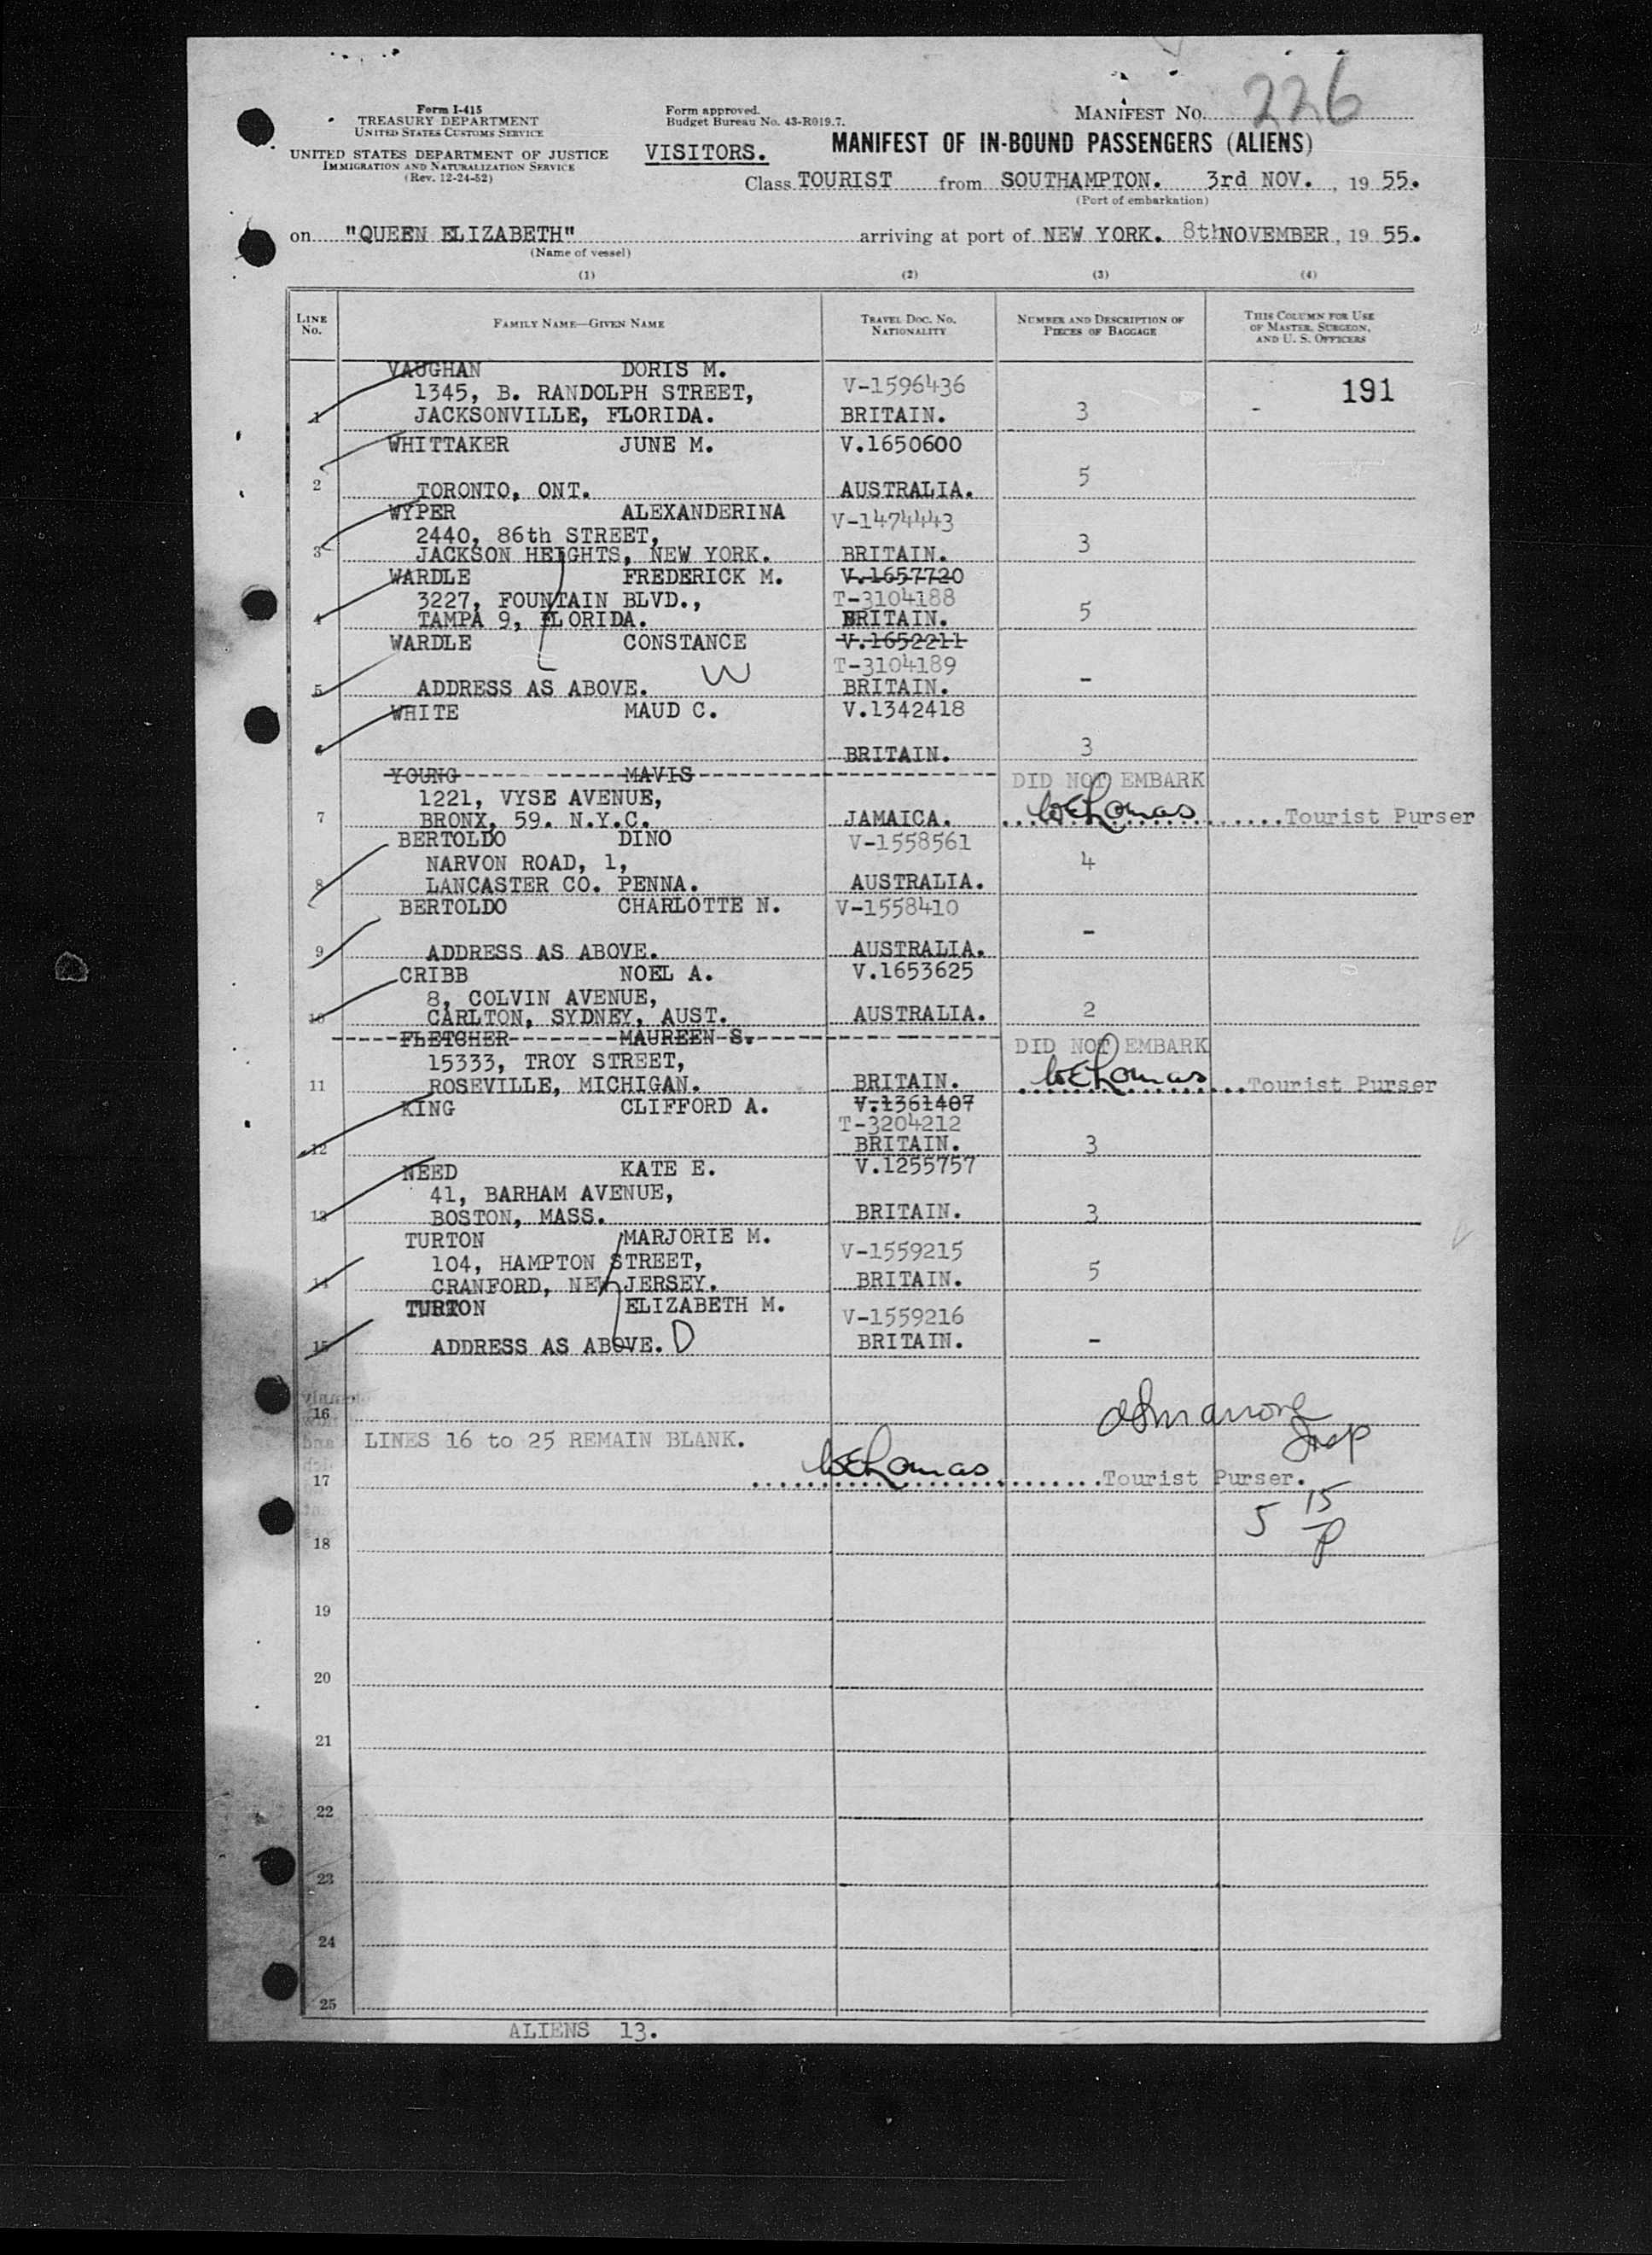 Form I-415
TREASURY DEPARTMENT
UNITED STATES CUSTOMS SERVICE
UNITED STATES DEPARTMENT OF JUSTICE
IMMIGRATION AND NATURALIZATION SERVICE
(Rev. 12-24-52)
Form approved.
Budget Bureau No. 43-R019.7.
VISITORS.
MANIFEST No. 226
MANIFEST OF IN-BOUND PASSENGERS (ALIENS)
Class TOURIST from SOUTHAMPTON. 3rd NOV. , 19 55.
(Port of embarkation)
on "QUEEN ELIZABETH" arriving at port of NEW YORK. 8th NOVEMBER, 19 55.
(Name of vessel)
(1) (2) (3) (4)
LINE No.
FAMILY NAME—GIVEN NAME
TRAVEL DOC. No. NATIONALITY
NUMBER AND DESCRIPTION OF PIECES OF BAGGAGE
THIS COLUMN FOR USE OF MASTER, SURGEON, AND U. S. OFFICERS
191
VAUGHAN DORIS M.
1345, B. RANDOLPH STREET, V-1596436
1 JACKSONVILLE, FLORIDA. BRITAIN. 3 -
WHITTAKER JUNE M. V.1650600
2 TORONTO, ONT. AUSTRALIA. 5
WYPER ALEXANDERINA V-1474443
2440, 86th STREET,
3 JACKSON HEIGHTS, NEW YORK. BRITAIN. 3
WARDLE FREDERICK M. V.1657720
3227, FOUNTAIN BLVD., T-3104188
4 TAMPA 9, FLORIDA. BRITAIN. 5
WARDLE CONSTANCE V.1652211
W T-3104189
5 ADDRESS AS ABOVE. BRITAIN. -
WHITE MAUD C. V.1342418
6 BRITAIN. 3
YOUNG MAVIS DID NOT EMBARK
1221, VYSE AVENUE,
7 BRONX, 59. N.Y.C. JAMAICA. WELomas Tourist Purser
BERTOLDO DINO V-1558561
NARVON ROAD, 1, 4
8 LANCASTER CO. PENNA. AUSTRALIA.
BERTOLDO CHARLOTTE N. V-1558410
9 ADDRESS AS ABOVE. AUSTRALIA. -
CRIBB NOEL A. V.1653625
8, COLVIN AVENUE,
10 CARLTON, SYDNEY, AUST. AUSTRALIA. 2
FLETCHER MAUREEN S. DID NOT EMBARK
15333, TROY STREET,
11 ROSEVILLE, MICHIGAN. BRITAIN. WELomas Tourist Purser
KING CLIFFORD A. V.1361407
T-3204212
12 BRITAIN. 3
NEED KATE E. V.1255757
41, BARHAM AVENUE,
13 BOSTON, MASS. BRITAIN. 3
TURTON MARJORIE M.
104, HAMPTON STREET, V-1559215
14 CRANFORD, NEW JERSEY. BRITAIN. 5
TURTON ELIZABETH M. V-1559216
15 ADDRESS AS ABOVE. D BRITAIN. -
16
LINES 16 to 25 REMAIN BLANK.
17 WELomas Tourist Purser.
5 15
18
19
20
21
22
23
24
25
ALIENS 13.